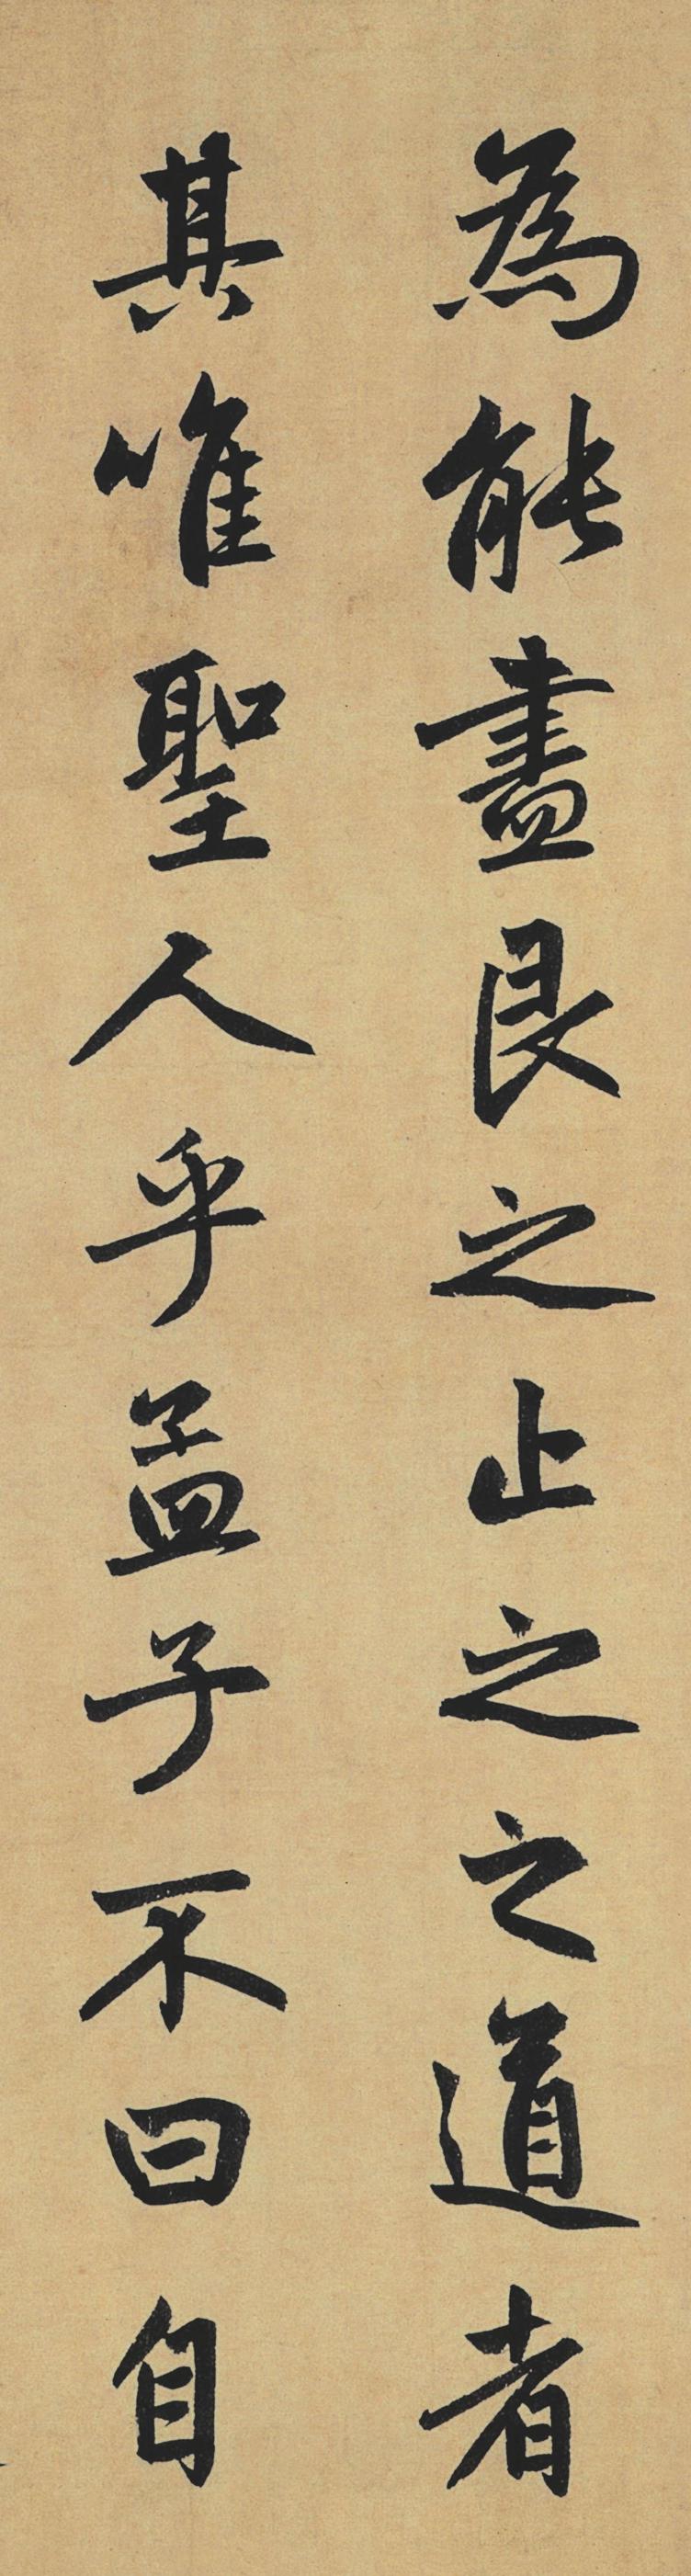 為能盡艮之止之之道者
其唯聖人乎孟子不曰自